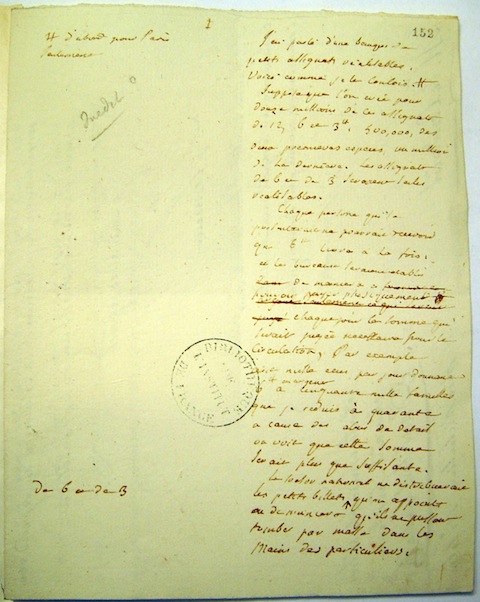 152
1
# d'abord pour Paris
seulement
Inédit
J'ai parlé d'une banque de
petits assignats réalisables.
Voici comme je le conçois. #
Supposé que l'on crée pour
douze millions de ces assignats
de 12, 6 et 3 ₶. 500,000, des
deux premieres especes, un million
de la derniere. Les assignats
de 6 et de 3 seraient seuls
réalisables.
Chaque personne qui se
présenterait ne pourrait recevoir
que 6 ₶ livres à la fois;
et les bureaux seraient établis
de maniere à
pouvoir payer
chaque jour la somme qui
serait jugée necessaire pour la
circulation; Par exemple
cent mille ecus par jour donneraient
6 ₶
à cinquante mille familles
que je réduis à quarante
a cause des abus de détail
on voit que cette somme
serait plus que suffisante.
le trésor national ne distribuerait
les petits billets qu'en appoint
ou de maniere qu'ils ne pussent
tomber par masse dans les
mains des particuliers.
De 6 et de 3
BIBLIOTHEQUE
DE L'INSTITUT
FRANCE